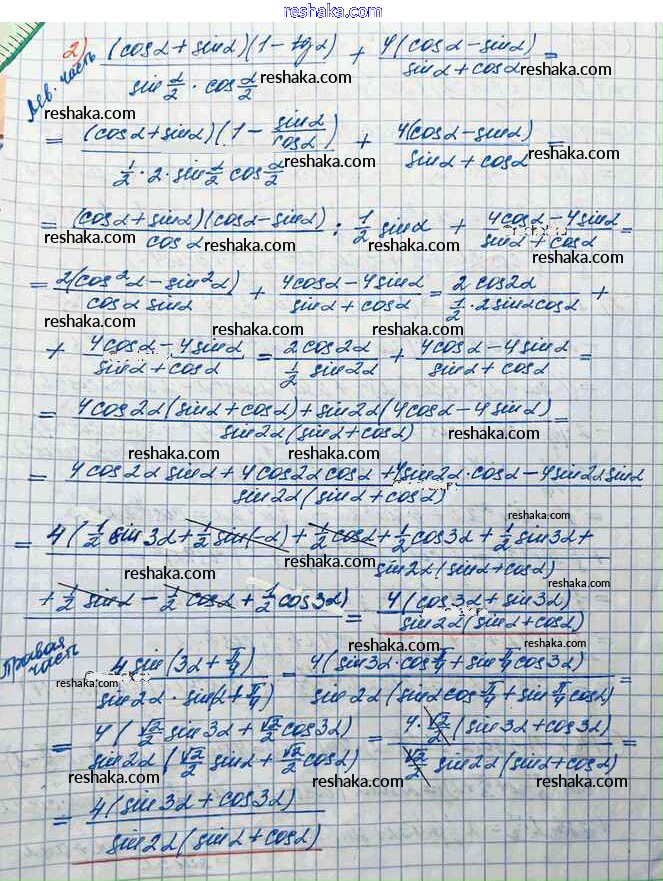 reshaka.com
2) Лев. часть (cosα + sinα)(1 - tgα) / sin α/2 · cos α/2 + 4(cosα - sinα) / sinα + cosα =
reshaka.com reshaka.com
= (cosα + sinα)(1 - sinα/cosα) / 1/2 · 2 · sin α/2 cos α/2 + 4(cosα - sinα) / sinα + cosα =
reshaka.com reshaka.com
= (cosα + sinα)(cosα - sinα) / cosα : 1/2 sinα + 4cosα - 4sinα / sinα + cosα =
reshaka.com reshaka.com
= 2(cos²α - sin²α) / cosα sinα + 4cosα - 4sinα / sinα + cosα = 2cos2α / 1/2 · 2sinα cosα +
reshaka.com reshaka.com
+ 4cosα - 4sinα / sinα + cosα = 2cos2α / 1/2 sin2α + 4cosα - 4sinα / sinα + cosα =
reshaka.com reshaka.com
= 4cos2α(sinα + cosα) + sin2α(4cosα - 4sinα) / sin2α(sinα + cosα) =
reshaka.com reshaka.com
= 4cos2α sinα + 4cos2α cosα + 4sin2α · cosα - 4sin2α sinα / sin2α(sinα + cosα) =
reshaka.com reshaka.com
= 4(1/2 sin3α + 1/2 sin(-α) + 1/2 cosα + 1/2 cos3α + 1/2 sin3α +
reshaka.com reshaka.com
+ 1/2 sinα - 1/2 cosα + 1/2 cos3α) / sin2α(sinα + cosα) = 4(cos3α + sin3α) / sin2α(sinα + cosα)
reshaka.com reshaka.com
Правая часть 4sin(3α + π/4) / sin2α · sin(α + π/4) = 4(sin3α · cos π/4 + sin π/4 cos3α) / sin2α(sinα cos π/4 + sin π/4 cosα) =
reshaka.com reshaka.com
= 4(√2/2 sin3α + √2/2 cos3α) / sin2α(√2/2 sinα + √2/2 cosα) = 4 · √2/2 (sin3α + cos3α) / √2/2 sin2α(sinα + cosα) =
reshaka.com reshaka.com
= 4(sin3α + cos3α) / sin2α(sinα + cosα)
reshaka.com